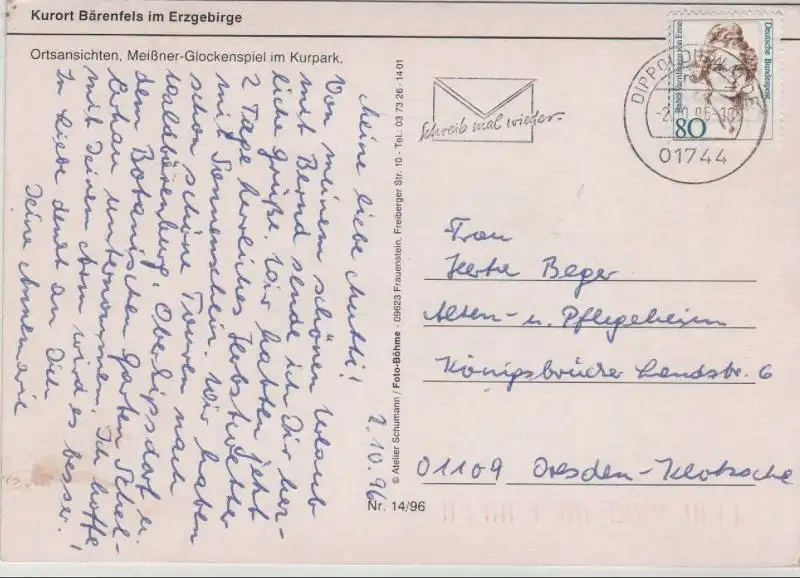 Kurort Bärenfels im Erzgebirge
Ortsansichten, Meißner-Glockenspiel im Kurpark,
Meine liebe Mutti!
2.10.96
Von meinem schönen Urlaub
mit Bernd sende ich Dir herz-
liche Grüße. Wir hatten jetzt
2 Tage herrliches Herbstwetter
mit Sonnenschein. Wir haben
schon schöne Touren nach
Waldbärenburg, Oberlipsdorf u.
dem Botanischen Garten Schel-
lerhau unternommen. Ich hoffe,
mit Deinem Arm wird es besser.
In Liebe denkt an Dich
Deine Annemarie
© Atelier Schumann / Foto-Böhme - 09623 Frauenstein, Freiberger Str. 10 - Tel.: 03 73 26 - 14 01
Nr. 14/96
Schreib mal wieder
Deutsche Bundespost
Rahel Varnhagen von Ense
80
01744
Frau
Herta Beger
Alten- u. Pflegeheim
Königsbrücker Landstr. 6
01109 Dresden-Klotzsche